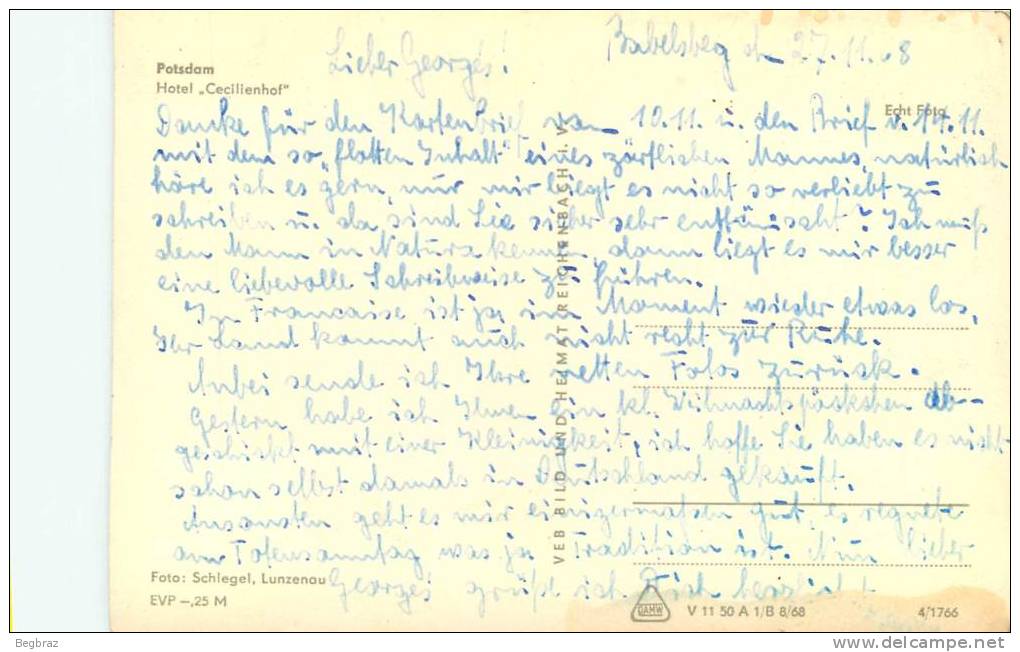 Babelsberg d. 27.11.68
Lieber Georges!
Potsdam
Hotel „Cecilienhof"
Echt Foto
Dancke für den Kartenbrief vom 10.11. u. den Brief v. 17.11.
mit dem so „flotten Inhalt" eines zärtlichen Mannes, natürlich
höre ich es gern, nur mir liegt es nicht so verliebt zu
schreiben u. da sind Sie sicher sehr enttäuscht? Ich muß
den Mann in Natura kennen, dann liegt es mir besser
eine liebevolle Schreibweise zu führen.
In Francaise ist ja im Moment wieder etwas los,
Ihr Land kommt auch nicht recht zur Ruhe.
Anbei sende ich Ihre netten Fotos zurück.
Gestern habe ich Ihnen ein kl. Weihnachtspäckchen ab-
geschickt mit einer Kleinigkeit, ich hoffe Sie haben es nicht
schon selbst damals in Deutschland gekauft.
Ansonsten geht es mir einigermaßen gut, es regnete
am Totensonntag was ja Tradition ist. Nun lieber
Georges grüßt ich Dich herzlich!
VEB BILD UND HEIMAT REICHENBACH I. V.
Foto: Schlegel, Lunzenau
EVP –,25 M
DAMW
V 11 50 A 1/B 8/68
4/1766
Begbraz
www.delcampe.net